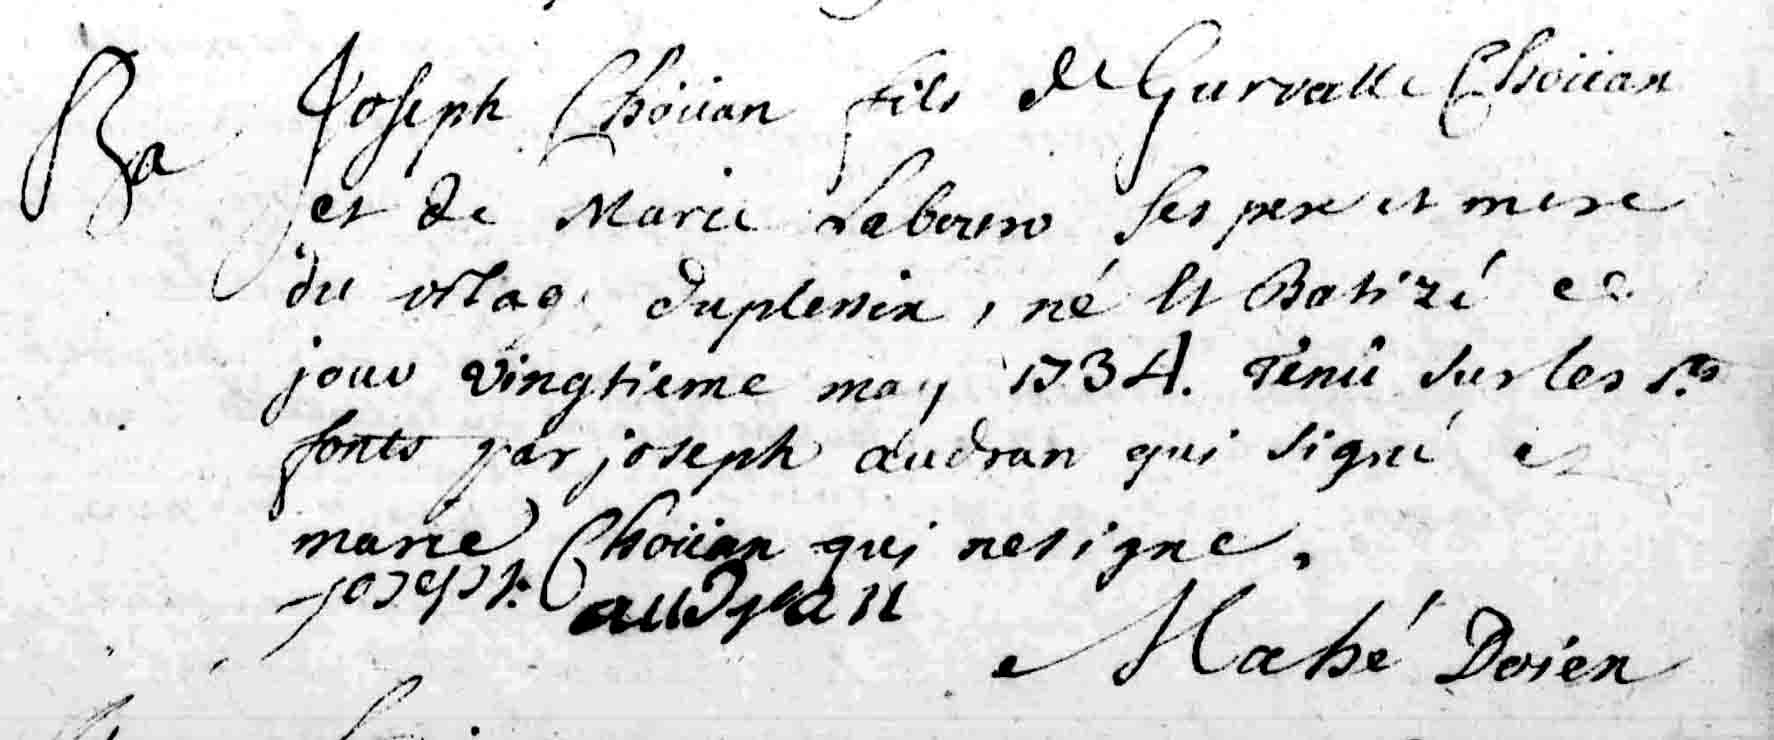 Ba
Joseph Choüan fils de Gurvalle Choüan
et de Marie Labouro ses pere et mere
du vilage duplessix, né et Batizé ce
jour vingtieme may 1734. Tenû sur les sts
fonts par joseph audran qui signe et
marie Choüan qui nesigne.
joseph audran
Mahé Doien